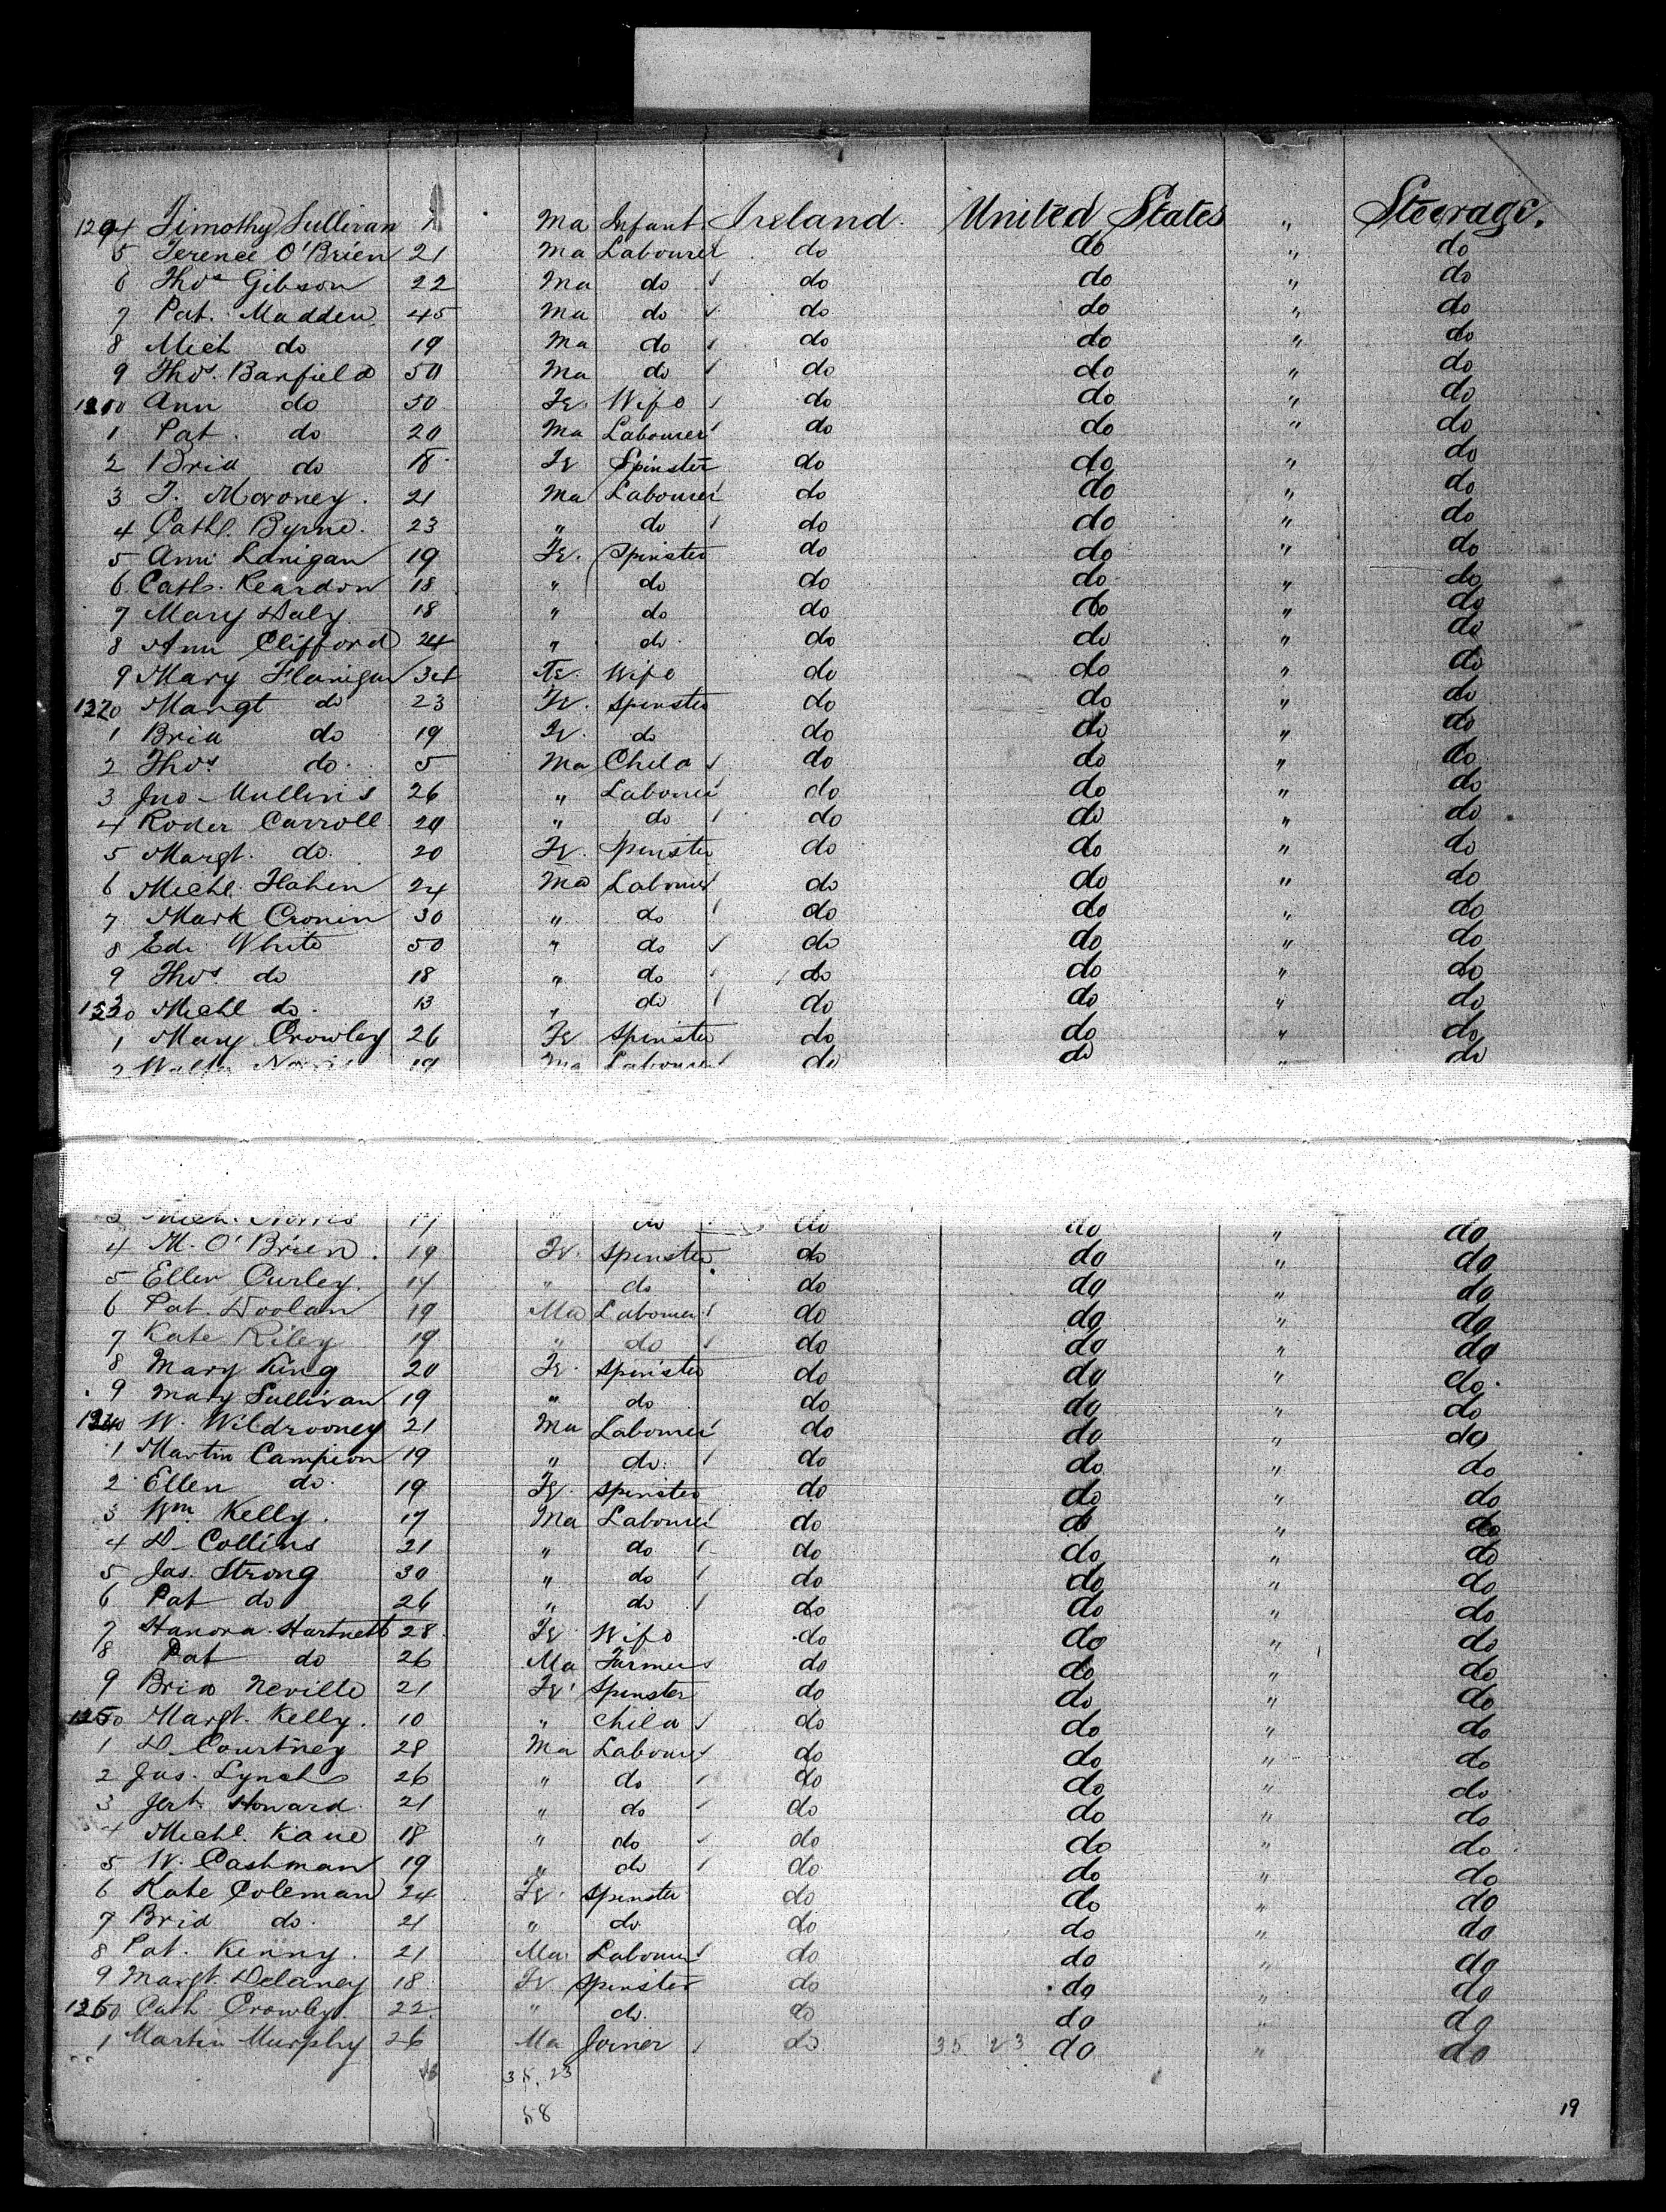 1204 Timothy Sullivan Ma Infant Ireland. United States " Steerage.
5 Terence O'Brien 21 Ma Labourer do do " do
6 Thos Gibson 22 Ma do do do " do
7 Pat. Madden 45 Ma do do do " do
8 Mich do 19 Ma do do do " do
9 Thos. Banfield 50 Ma do do do " do
1210 Ann do 50 Fe. Wife do do " do
1 Pat. do 20 Ma Labourer do do " do
2 Brid do 18 Fe Spinster do do " do
3 T. Moroney. 21 Ma Labourer do do " do
4 Cath. Byrne. 23 " do do do " do
5 Ann Lanigan 19 Fe. Spinster do do " do
6 Cath. Reardon 18 " do do do " do
7 Mary Daly 18 " do do do " do
8 Ann Clifford 24 " do do do " do
9 Mary Flanigan 34 Fe. Wife do do " do
1220 Margt do 23 Fe. Spinster do do " do
1 Brid do 19 Fe. do do do " do
2 Thos. do. 5 Ma Child do do " do
3 Jno Mullins 26 " Labourer do do " do
4 Roder Carroll 20 " do do do " do
5 Margt. do. 20 Fe. Spinster do do " do
6 Michl. Hahen 24 Ma Labourer do do " do
7 Mark Cronin 30 " do do do " do
8 Ed. White 50 " do do do " do
9 Thos. do 18 " do do do " do
1230 Michl do. 13 " do do do " do
1 Mary Crowley 26 Fe Spinster do do " do
2 Walter Norris 19 Ma Labourer do do " do
3 Mich. Norris 17 " do do do " do
4 M. O'Brien. 19 Fe. Spinster do do " do
5 Ellen Curley. 14 " do do do " do
6 Pat. Doolan 19 Ma Labourer do do " do
7 Kate Riley 19 " do do do " do
8 Mary King 20 Fe. Spinster do do " do.
9 Mary Sullivan 19 " do do do " do
1240 W. Wildrooney 21 Ma Labourer do do " do
1 Martin Campion 19 " do. do do " do
2 Ellen do. 19 Fe. Spinster do do " do
3 Wm. Kelly. 17 Ma Labourer do do " do
4 D Collins 21 " do do do " do
5 Jas. Strong 30 " do do do " do
6 Pat do 26 " do do do " do
7 Hanora Hartnett 28 Fe Wife do do " do
8 Pat do 26 Ma Farmer do do " do
9 Brid Neville 21 Fe Spinster do do " do
1250 Margt. Kelly. 10 " Child do do " do
1 D Courtney 28 Ma Labourer do do " do
2 Jas. Lynch 26 " do do do " do
3 Jert. Howard 21 " do do do " do
4 Michl. Kane 18 " do do do " do
5 W. Cashman 19 " do do do " do
6 Kate Coleman 24 Fe. Spinster do do " do
7 Brid do. 21 " do do do " do
8 Pat. Kenny. 21 Ma Labourer do do " do
9 Margt. Delaney 18 Fe Spinster do do " do
1260 Cath. Crowley. 22 " do. do do " do
1 Martin Murphy 26 Ma Joiner do 35 23 do " do
35.23
58
19